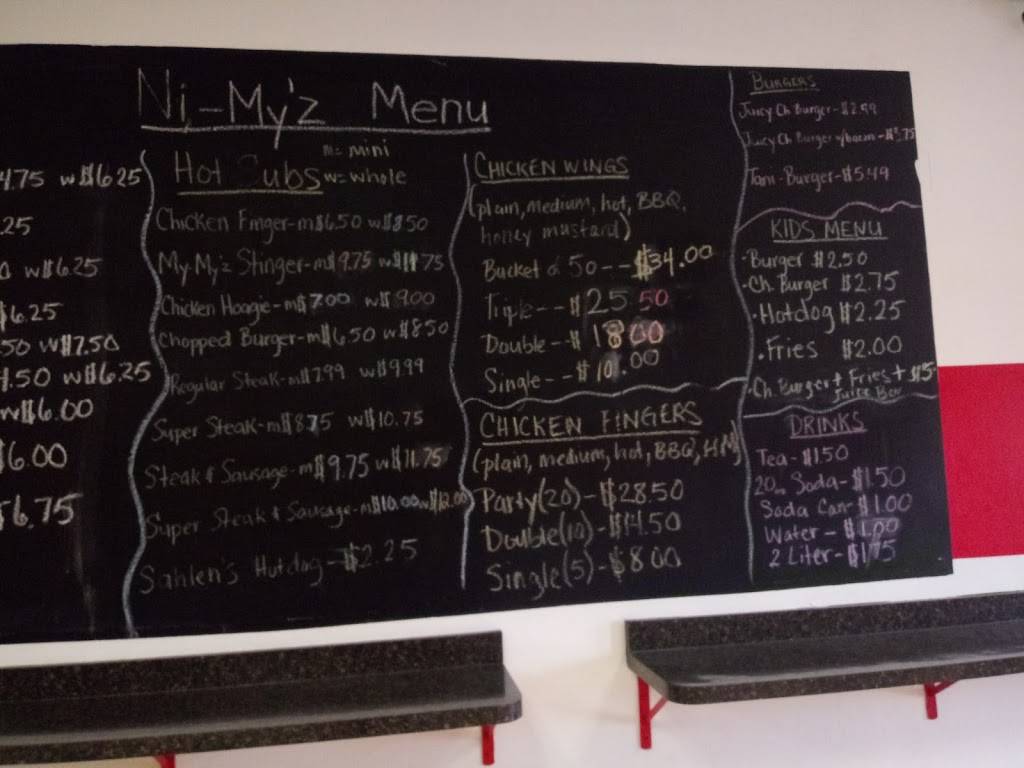 Ni-My'z Menu
4.75 w$6.25
.25
w$6.25
$6.25
.50 w$7.50
4.50 w$6.25
w$6.00
$6.00
$6.75
Hot Subs
m= mini
w= whole
Chicken Finger-m$6.50 w$8.50
My-My'z Stinger-m$9.75 w$11.75
Chicken Hoagie-m$7.00 w$9.00
Chopped Burger-m$6.50 w$8.50
Regular Steak-m$7.99 w$9.99
Super Steak-m$8.75 w$10.75
Steak & Sausage-m$9.75 w$11.75
Super Steak & Sausage-m$10.00 w$12.00
Sahlen's Hotdog-$2.25
CHICKEN WINGS
(plain, medium, hot, BBQ,
honey mustard)
Bucket of 50--$34.00
Triple--$25.50
Double--$18.00
Single--$10.00
CHICKEN FINGERS
(plain, medium, hot, BBQ, HM)
Party(20)-$28.50
Double(10)-$14.50
Single(5)-$8.00
BURGERS
Juicy Ch. Burger-$2.99
Juicy Ch Burger w/bacon-$3.75
Tam-Burger-$5.49
KIDS MENU
·Burger $2.50
·Ch. Burger $2.75
·Hotdog $2.25
·Fries $2.00
·Ch. Burger + Fries + $5-
Juice Box
DRINKS
Tea-$1.50
20oz Soda-$1.50
Soda Can-$1.00
Water-$1.00
2 Liter-$1.75